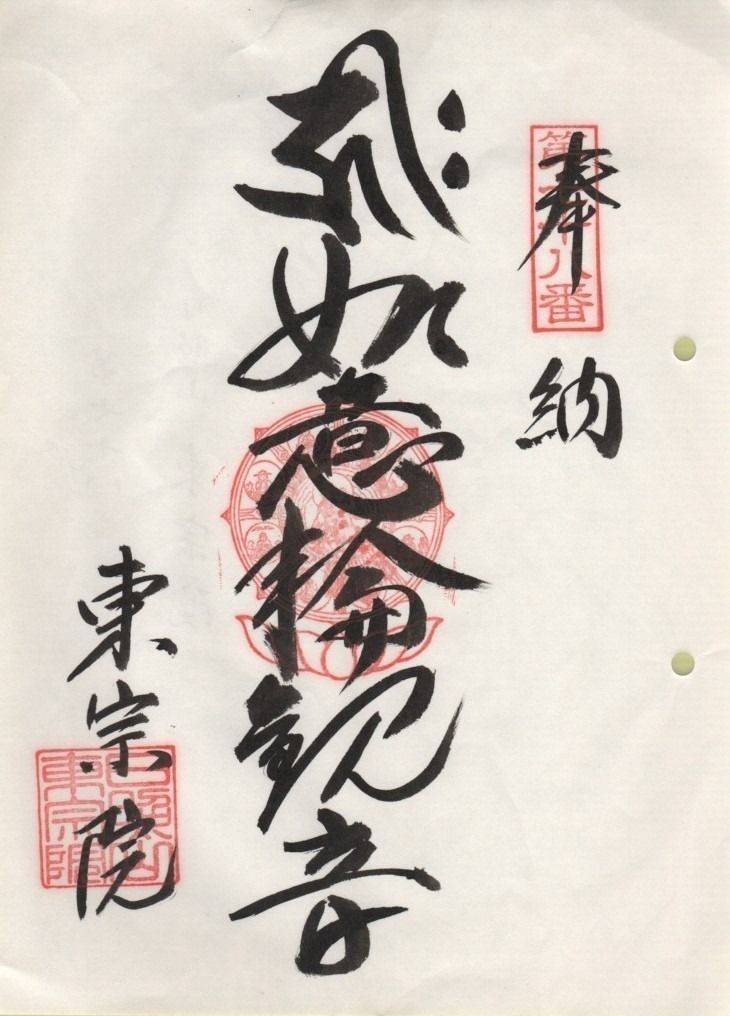 奉納
第十八番
𑖮𑖿𑖨𑖱𑖾如意輪観音
東宗院
東宗院